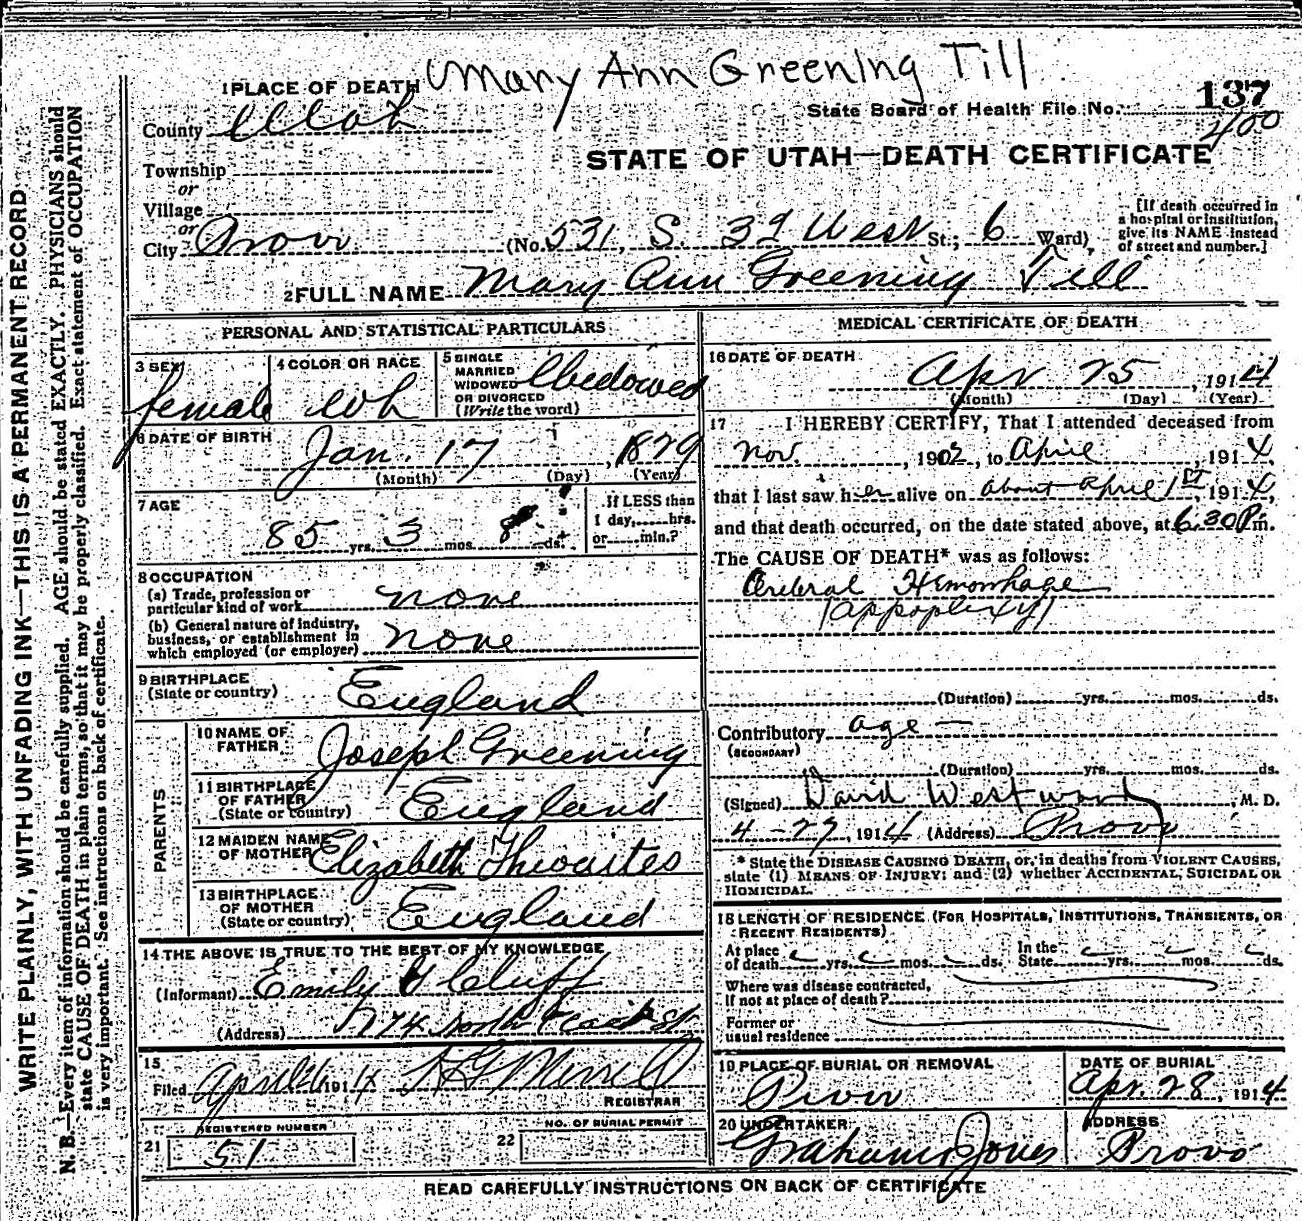 Mary Ann Greening Till
1 PLACE OF DEATH
137
State Board of Health File No.
400
County Utah
STATE OF UTAH—DEATH CERTIFICATE
Township
or
Village
or
City Provo (No. 531, S. 3d West St.; 6 Ward)
[If death occurred in
a hospital or institution,
give its NAME instead
of street and number.]
2 FULL NAME Mary Ann Greening Till
PERSONAL AND STATISTICAL PARTICULARS
3 SEX
female
4 COLOR OR RACE
Wh
5 SINGLE
MARRIED
WIDOWED
OR DIVORCED
(Write the word)
Widowed
6 DATE OF BIRTH
Jan. 17, 1879
(Month) (Day) (Year)
7 AGE
85 yrs. 3 mos. 8 ds.
If LESS than
1 day, hrs.
or min.?
8 OCCUPATION
(a) Trade, profession or
particular kind of work none
(b) General nature of industry,
business, or establishment in
which employed (or employer) none
9 BIRTHPLACE
(State or country) England
PARENTS
10 NAME OF
FATHER Joseph Greening
11 BIRTHPLACE
OF FATHER
(State or country) England
12 MAIDEN NAME
OF MOTHER Elizabeth Thwaites
13 BIRTHPLACE
OF MOTHER
(State or country) England
14 THE ABOVE IS TRUE TO THE BEST OF MY KNOWLEDGE
(Informant) Emily G Cluff
(Address) 174 North East St
15
Filed April 1914 Merrell
REGISTRAR
REGISTERED NUMBER
21 51
NO. OF BURIAL PERMIT
22
MEDICAL CERTIFICATE OF DEATH
16 DATE OF DEATH
Apr 25, 1914
(Month) (Day) (Year)
17 I HEREBY CERTIFY, That I attended deceased from
Nov. , 1902, to April , 1914,
that I last saw her alive on about April 1st, 1914,
and that death occurred, on the date stated above, at 6.30 P.m.
The CAUSE OF DEATH* was as follows:
Cerebral Hemorrhage
(appoplexy)
(Duration) yrs. mos. ds.
Contributory age —
(SECONDARY)
(Duration) yrs. mos. ds.
(Signed) David Westwood, M. D.
4-27, 1914 (Address) Provo
* State the DISEASE CAUSING DEATH, or, in deaths from VIOLENT CAUSES,
state (1) MEANS OF INJURY; and (2) whether ACCIDENTAL, SUICIDAL OR
HOMICIDAL.
18 LENGTH OF RESIDENCE (FOR HOSPITALS, INSTITUTIONS, TRANSIENTS, OR
RECENT RESIDENTS)
At place
of death yrs. mos. ds.
In the
State yrs. mos. ds.
Where was disease contracted,
If not at place of death?
Former or
usual residence
19 PLACE OF BURIAL OR REMOVAL
Provo
DATE OF BURIAL
Apr. 28, 1914
20 UNDERTAKER
Graham Jones
ADDRESS
Provo
READ CAREFULLY INSTRUCTIONS ON BACK OF CERTIFICATE
WRITE PLAINLY, WITH UNFADING INK—THIS IS A PERMANENT RECORD
N. B.—Every item of information should be carefully supplied. AGE should be stated EXACTLY. PHYSICIANS should
state CAUSE OF DEATH in plain terms, so that it may be properly classified. Exact statement of OCCUPATION
is very important. See instructions on back of certificate.